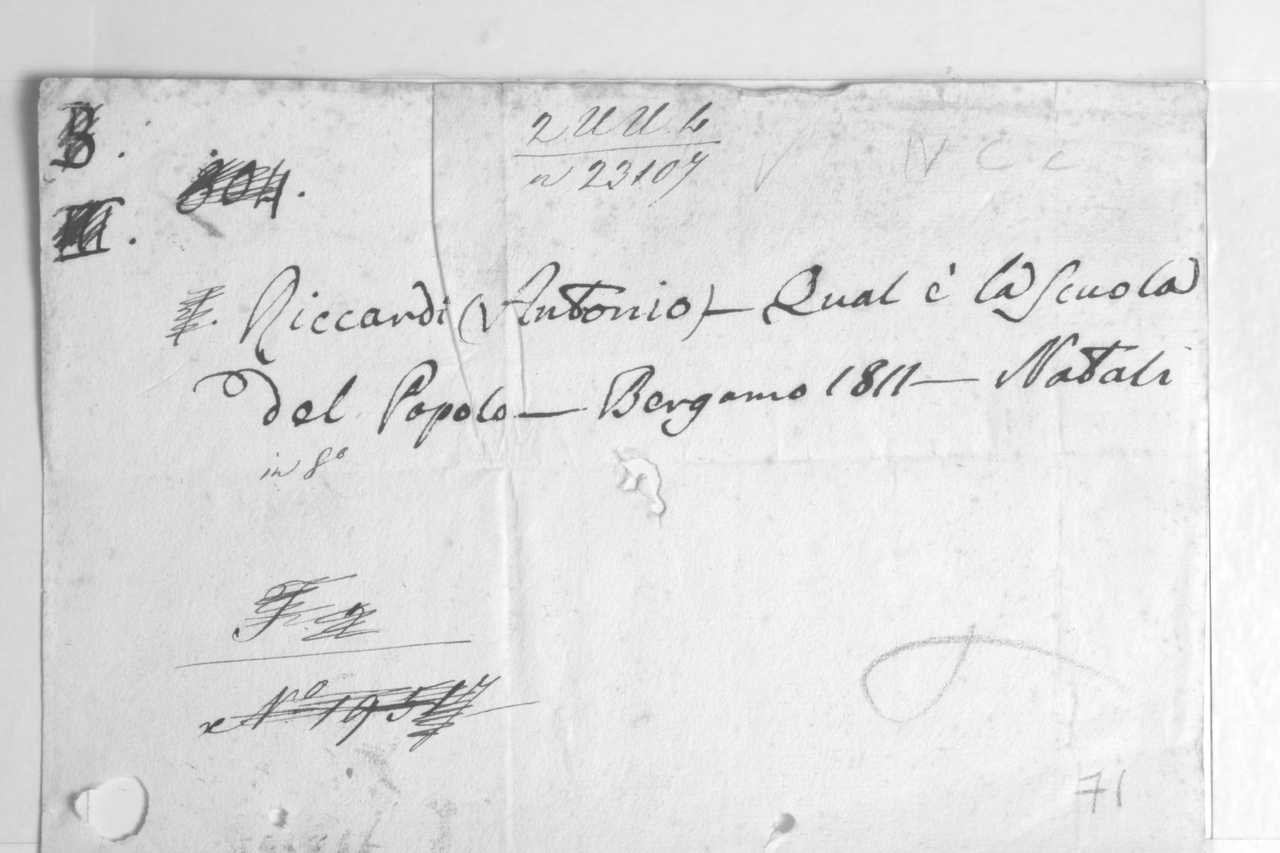 B.
2 UU. 4
V N C C
804.
n 23107
III.
Riccardi (Antonio) — Qual è la Scuola
del Popolo — Bergamo 1811 — Natali
in 8°
F. 2
N° 1951
71